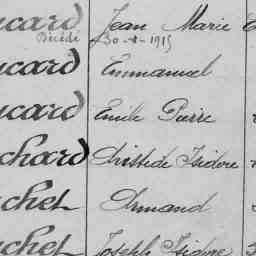 ucard Jean Marie
Décédé 30-8-1915
ucard Emmanuel
ucard Emile Pierre
chard Aristide Isidore
chet Armand
chet Joseph Isidore